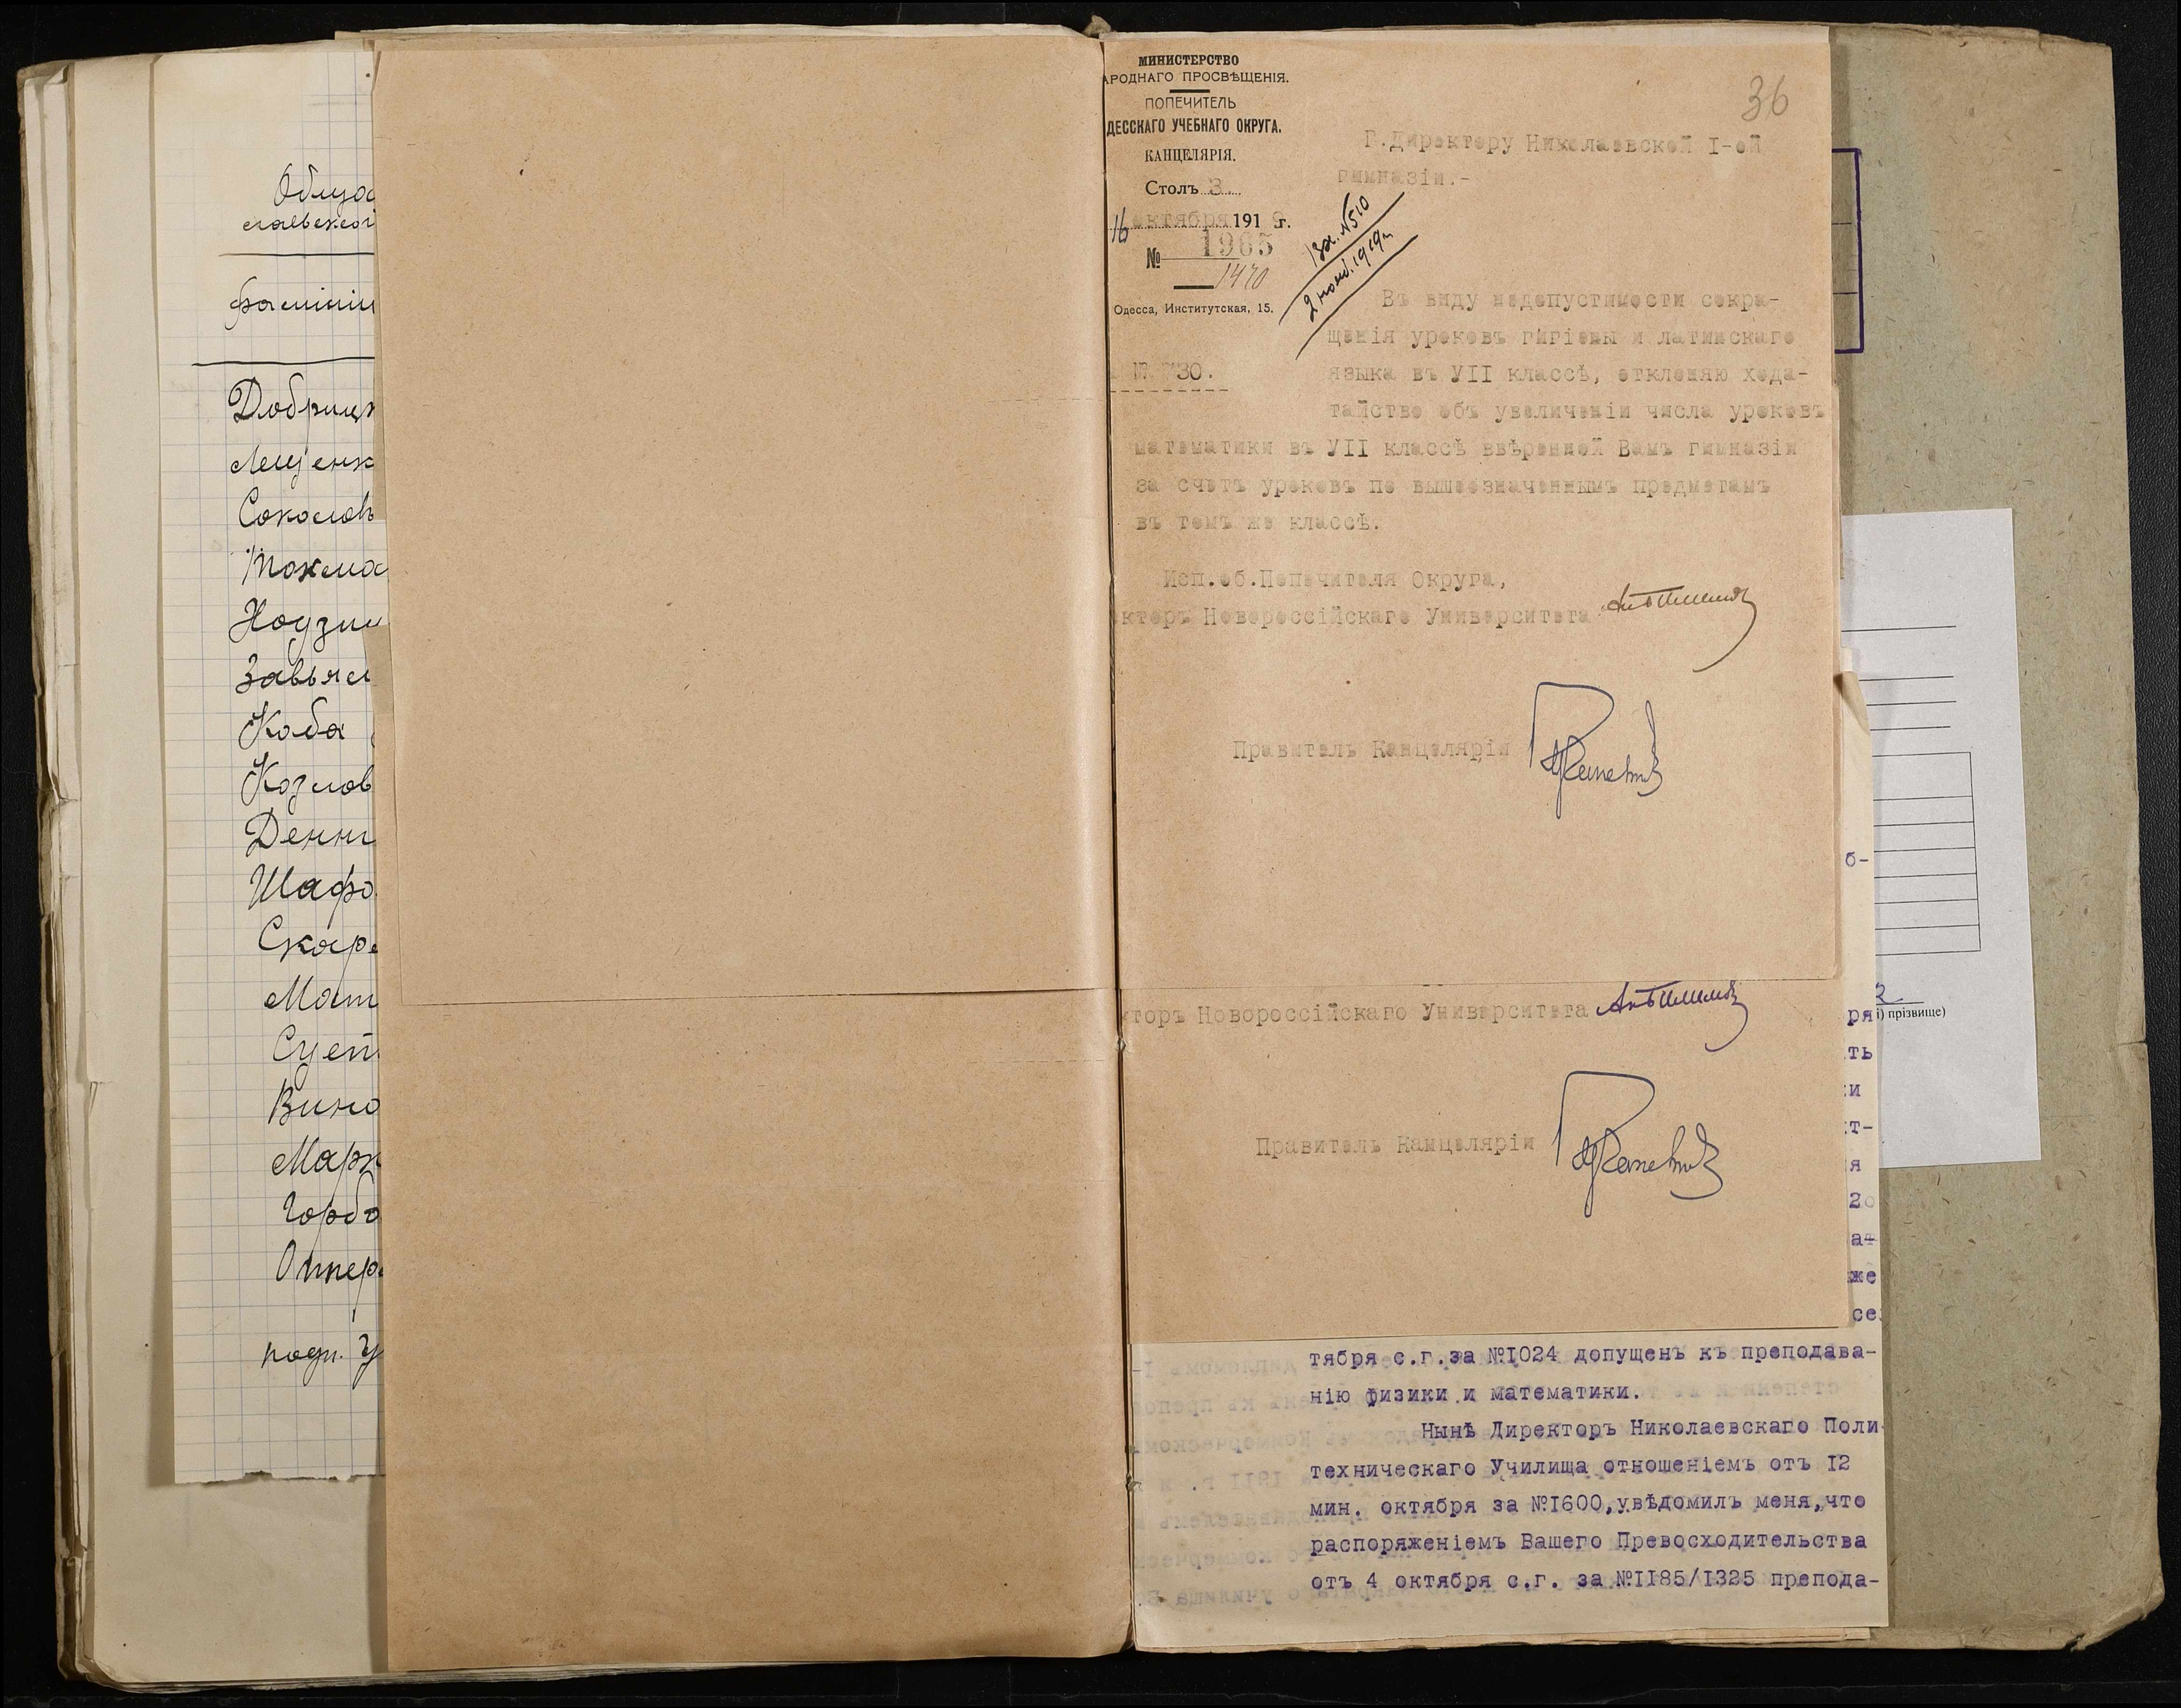 Облуд
славской
фамилии
Добрицк
Лещенк
Соколовъ
Токма
Нодзи
Завьял
Коба
Козлов
Денни
Шафо
Скаре
Мат
Сует
Вино
Марк
Горбо
Оппер
подп. У
МИНИСТЕРСТВО
АРОДНАГО ПРОСВѢЩЕНІЯ.
ПОПЕЧИТЕЛЬ
ДЕССКАГО УЧЕБНАГО ОКРУГА.
КАНЦЕЛЯРІЯ.
Столъ 3.
16 октября 1919 г.
№ 1965
1470
Одесса, Институтская, 15.
№ 730.
36
Г.Директору Николаевской I-ой
гимназіи.-
Вх. №510
2 нояб. 1919 г.
Въ виду недопустимости сокра-
щенія уроковъ гигіены и латинскаго
языка въ УІІ классѣ, отклоняю хода-
тайство объ увеличеніи числа уроковъ
математики въ УІІ классѣ ввѣренной Вамъ гимназіи
за счетъ уроковъ по вышеозначеннымъ предметамъ
въ томъ же классѣ.
Исп.об.Попечителя Округа,
кторъ Новороссійскаго Университета
Правитель Канцеляріи
кторъ Новороссійскаго Университета
Правитель Канцеляріи
б-
ря
ть
и
т-
я
20
а-
же
се
і) прізвище)
тября с.г.за №I024 допущенъ къ преподава-
нію физики и математики.
Нынѣ Директоръ Николаевскаго Поли
техническаго Училища отношеніемъ отъ I2
мин. октября за №I600,увѣдомилъ меня,что
распоряженіемъ Вашего Превосходительства
отъ 4 октября с.г. за №II85/I325 препода-